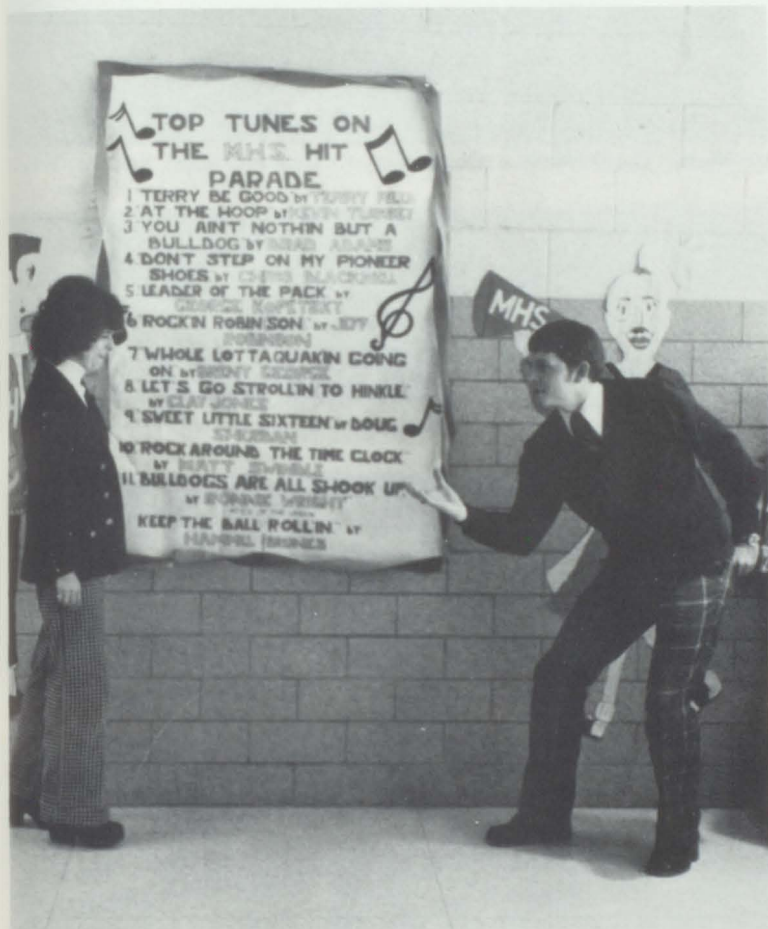 TOP TUNES ON
THE M.H.S. HIT
PARADE
1 TERRY BE GOOD" BY TERRY
2. AT THE HOOP" BY KEVIN
3 YOU AINT NOTHIN BUT A
BULLDOG" BY BRAD ADAMS
4 DON'T STEP ON MY PIONEER
SHOES BY CHRIS
5 LEADER OF THE PACK BY
GEORGE
6 ROCKIN ROBINSON" BY JEFF
ROBINSON
7 WHOLE LOTTA QUAKIN GOING
ON BY BRENT GEORGE
8. LET'S GO STROLLIN TO HINKLE"
BY CLAY JONES
9. SWEET LITTLE SIXTEEN" BY DOUG
10 ROCK AROUND THE TIME CLOCK"
BY MATT
11. BULLDOGS ARE ALL SHOOK UP"
BY RONNIE WRIGHT
KEEP THE BALL ROLLIN" BY
MHS